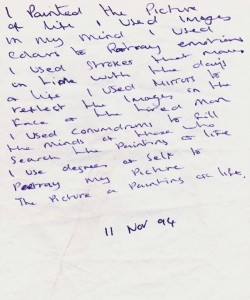 I Painted the Picture
of life I used Images
in my mind I used
colours to Portray emotions
I used strokes that move
in time with the days
of life I used mirrors to
reflect the Images in the
face of the tired man
I used conundrums to fill
the minds of those who
search the Painting of life
I use degrees of self to
Portray my Picture
The Picture a Painting of life.
11 Nov 94